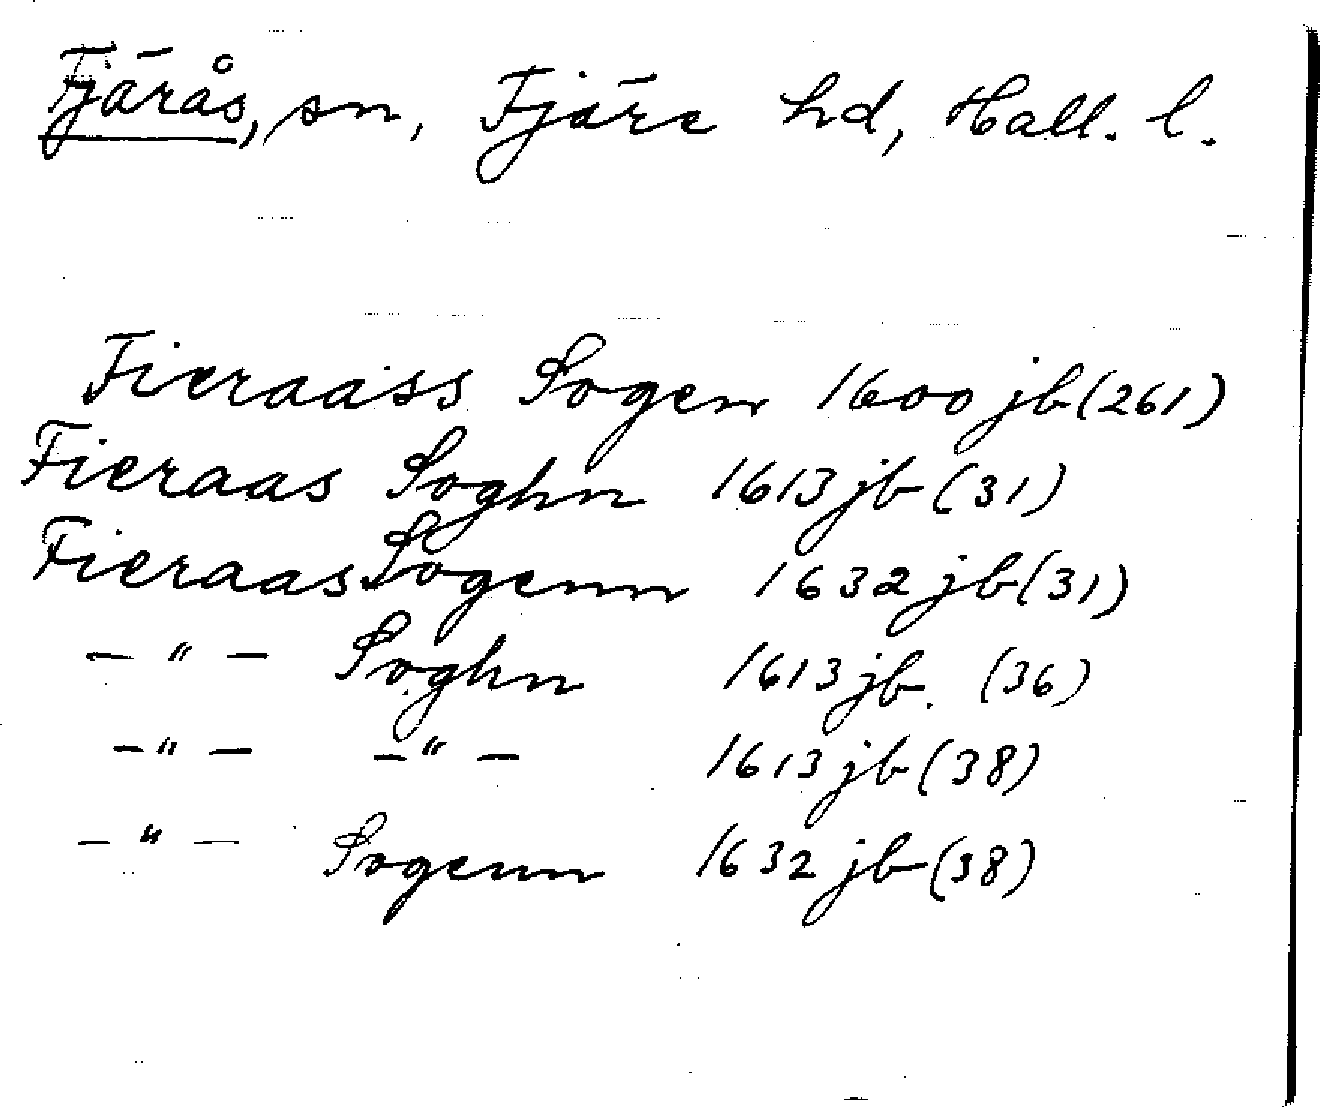 Fjärås, sn, Fjäre hd, Hall. l.
Fieraass Sogen 1600 jb (261)
Fieraas Soghn 1613 jb (31)
Fieraas Sogenn 1632 jb (31)
— " — Soghn 1613 jb. (36)
— " — — " — 1613 jb (38)
— " — Sogenn 1632 jb (38)